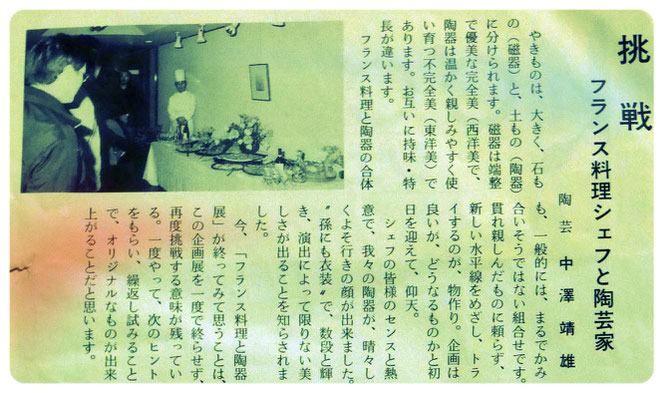 挑戦
フランス料理シェフと陶芸家
陶芸 中澤靖雄
やきものは、大きく、石も
の（磁器）と、土もの（陶器）
に分けられます。磁器は端整
で優美な完全美（西洋美）で、
陶器は温かく親しみやすく使
い育つ不完全美（東洋美）で
あります。お互いに持味・特
長が違います。
フランス料理と陶器の合体
も、一般的には、まるでかみ
合いそうではない組合せです。
貫れ親しんだものに頼らず、
新しい水平線をめざし、トラ
イするのが、物作り。企画は
良いが、どうなるものかと初
日を迎えて、仰天。
シェフの皆様のセンスと熱
意で、我々の陶器が、晴々し
くよそ行きの顔が出来ました。
〝孫にも衣装〟で、数段と輝
き、演出によって限りない美
しさが出ることを知らされま
した。
今、「フランス料理と陶器
展」が終ってみて思うことは、
この企画展を一度で終らせず、
再度挑戦する意味が残ってい
る。一度やって、次のヒント
をもらい、繰返し試みること
で、オリジナルなものが出来
上がることだと思います。